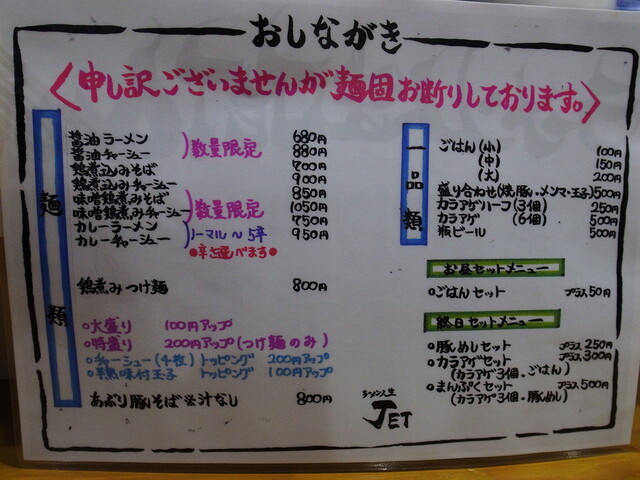 おしながき
〈申し訳ございませんが麺固お断りしております。〉
麺類
醤油ラーメン 680円
醤油チャーシュー 880円
)数量限定
鶏煮込みそば 700円
鶏煮込みチャーシュー 900円
味噌鶏煮みそば 850円
味噌鶏煮みチャーシュー 1050円
)数量限定
カレーラーメン 750円
カレーチャーシュー 950円
)ノーマル〜5辛
●辛さ選べます●
鶏煮みつけ麺 800円
○大盛り 100円アップ
○特盛り 200円アップ(つけ麺のみ)
○チャーシュー(4枚)トッピング 200円アップ
○半熟味付玉子 トッピング 100円アップ
あぶり豚そば※汁なし 800円
一品類
ごはん(小) 100円
(中) 150円
(大) 200円
盛り合わせ(焼豚、メンマ、玉子)500円
カラアゲハーフ(3個) 250円
カラアゲ (6個) 500円
瓶ビール 500円
お昼セットメニュー
○ごはんセット プラス50円
終日セットメニュー
○豚めしセット プラス250円
○カラアゲセット プラス300円
(カラアゲ3個、ごはん)
○まんぷくセット プラス500円
(カラアゲ3個、豚めし)
ラーメン人生
JET